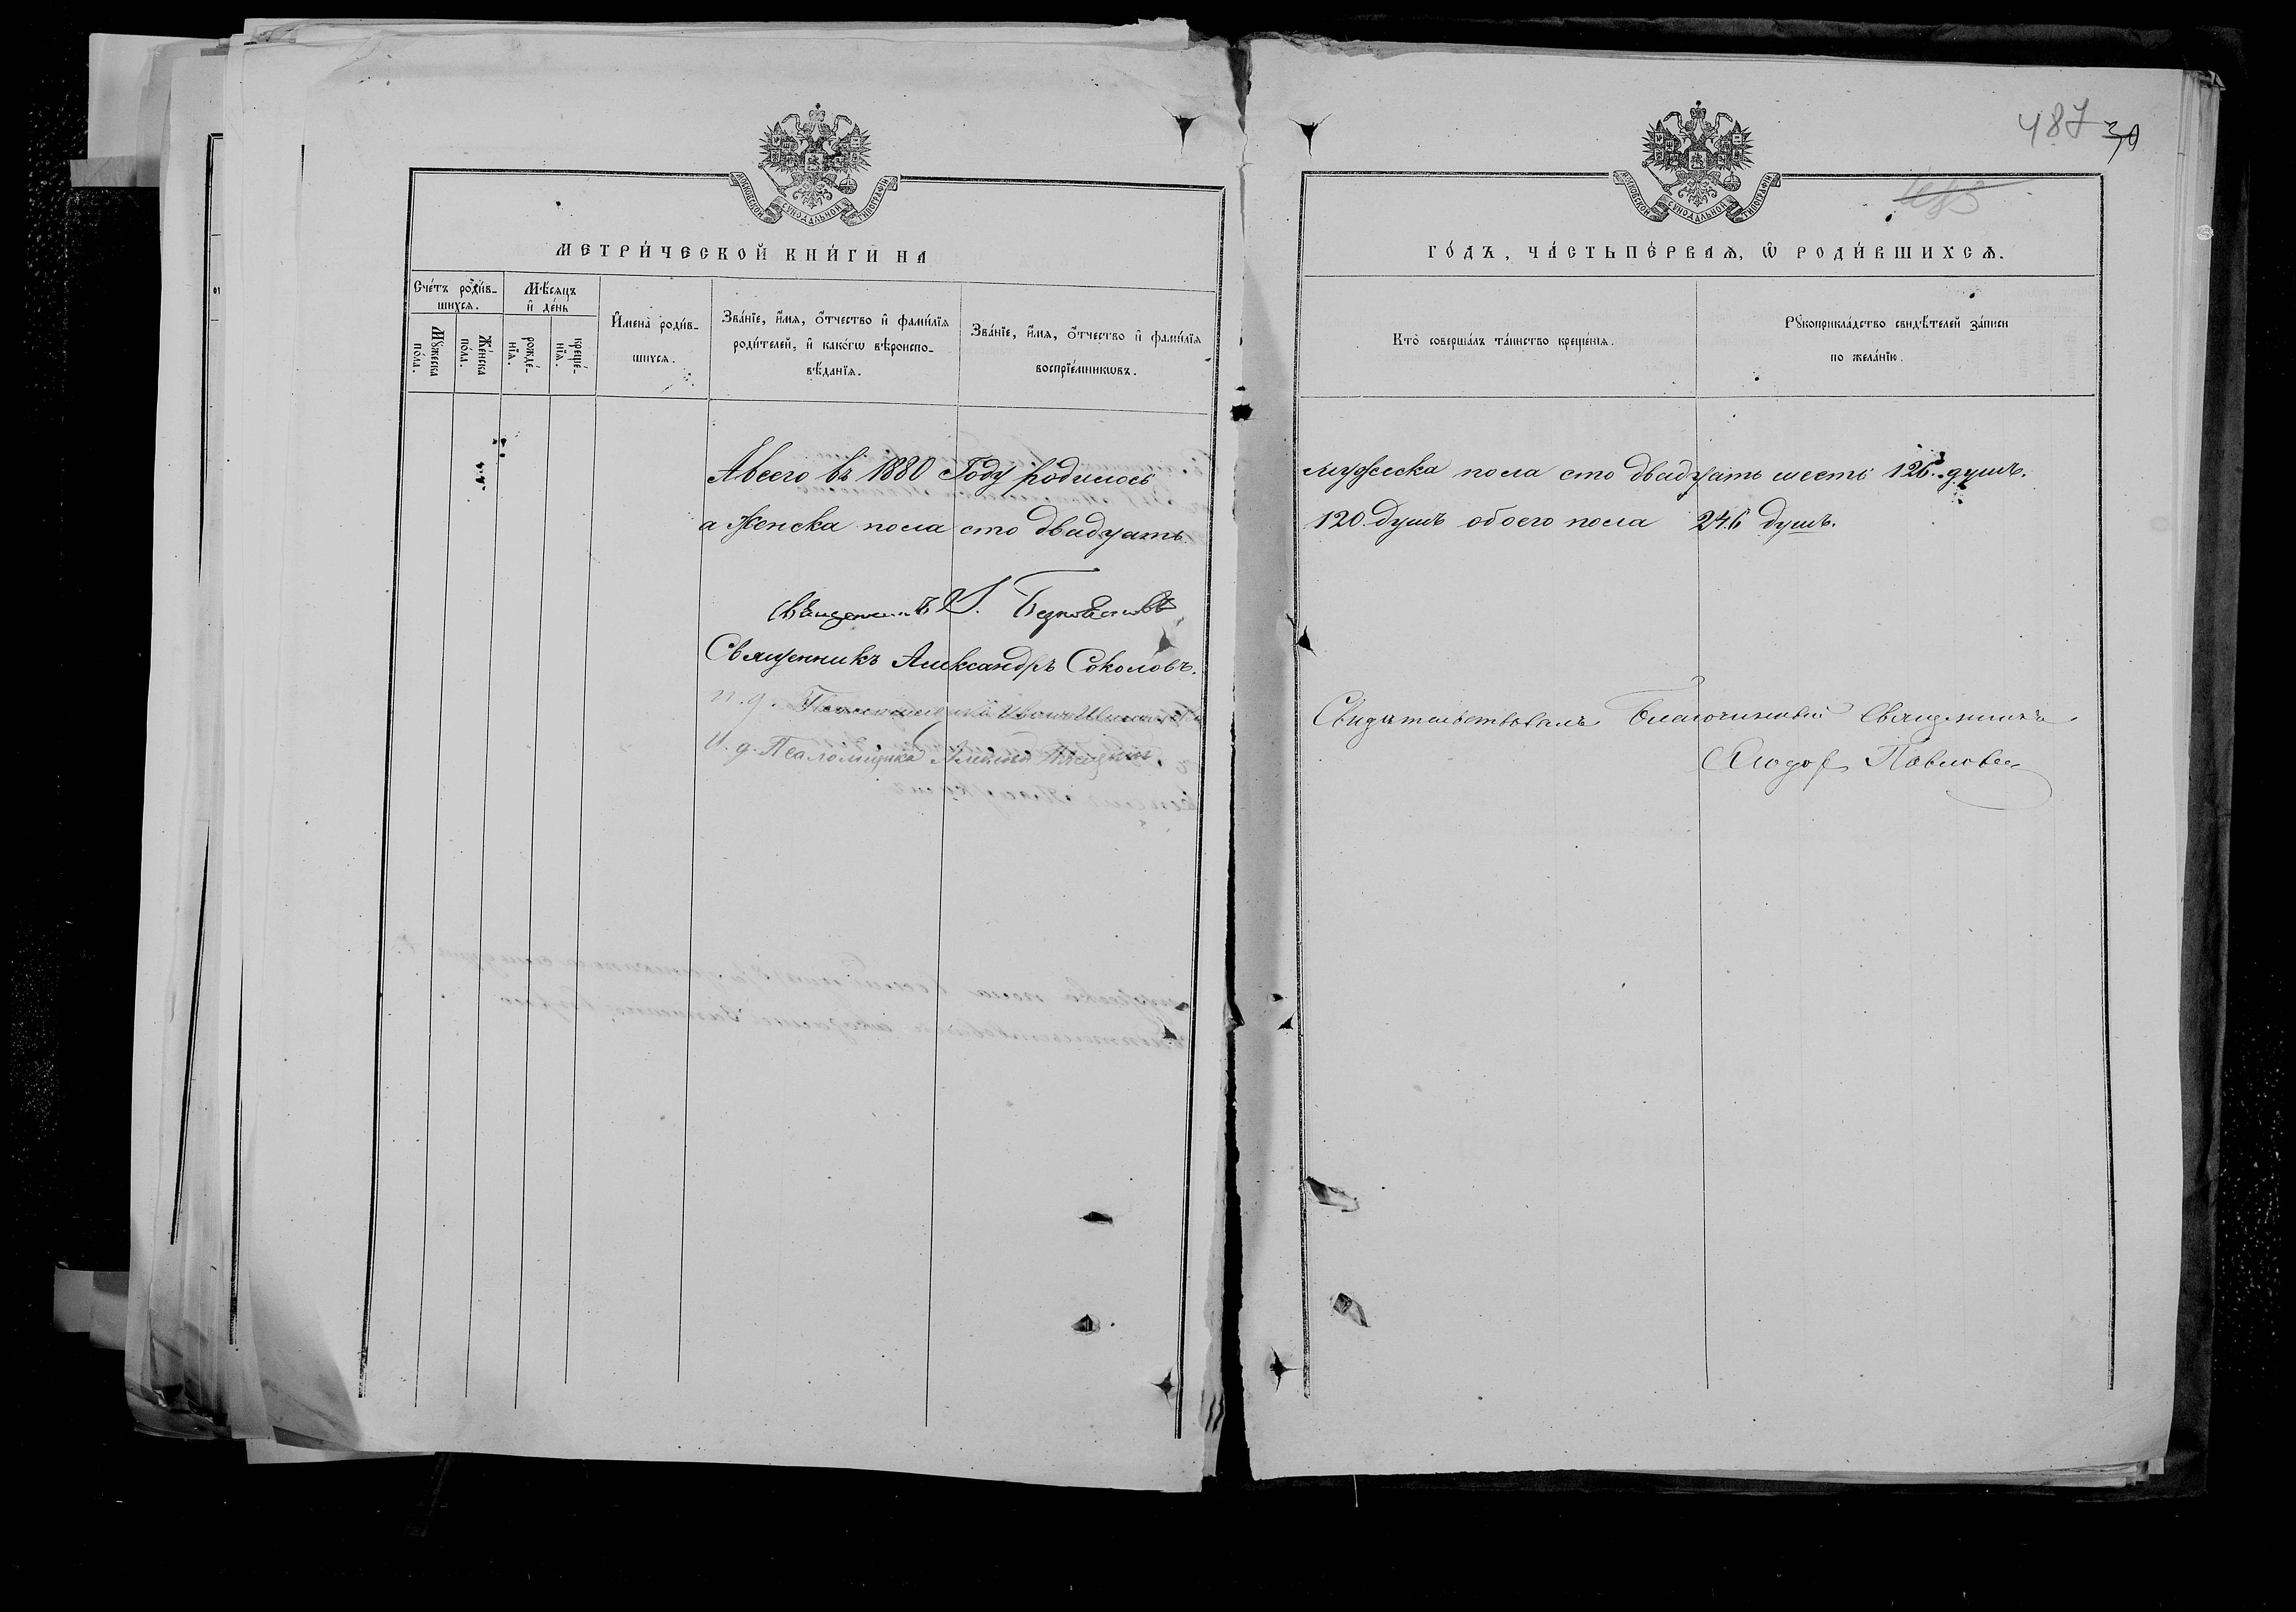 487 30
МОСКОВСКОЙ СѴНОДАЛЬНОЙ ТИПОГРАФІИ
МЕТРИ́ЧЕСКОЙ КНИ́ГИ НА
Сче́тъ роди́в-
шихся.
Мꙋжеска по́ла.
Же́нска по́ла.
Мѣ́сяцъ
и҆ де́нь
рожде́-
нїѧ.
креще́-
нїѧ.
И҆мена̀ роди́в-
шихся.
Зва́нїе, и҆́мя, ѻ҆́тчество и҆ фами́лїя
роди́телей, и҆ како́гѡ вѣроиспо-
вѣ́данїя.
Зва́нїе, и҆́мя, ѻ҆́тчество и҆ фами́лїя
воспрїе́мникѡвъ.
А всего въ 1880 Году родилось
а женска пола сто двадцать
Священникъ
Священникъ Александръ Соколовъ.
И. д. Псаломщика
И. д. Псаломщика
МОСКОВСКОЙ СѴНОДАЛЬНОЙ ТИПОГРАФІИ
ГО́ДЪ, ЧА́СТЬ ПЕ́РВАЯ, Ѡ҆ РОДИ́ВШИХСѦ.
Кто̀ соверша́лъ та́инство креще́нїя.
Рꙋкоприкла́дство свидѣ́телей за́писи
по жела́нїю.
мужеска пола сто двадцать шесть 126. душъ.
120. душъ обоего пола 246 душъ.
Свидѣтельствовалъ Благочинный Священникъ
Павловъ